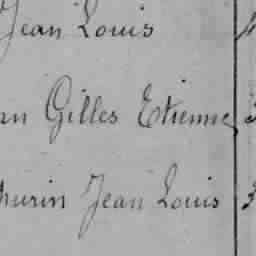 Jean Louis
an Gilles Etienne
hurin Jean Louis 3